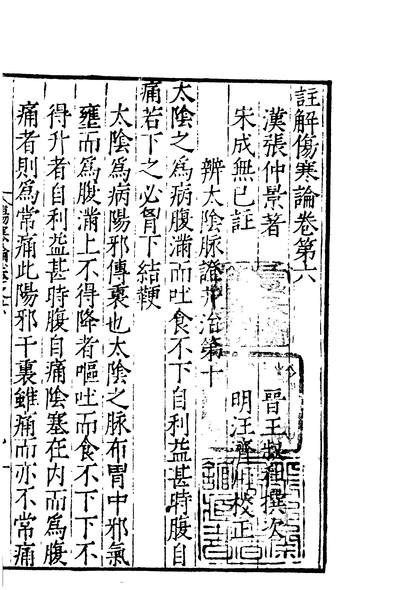 註解傷寒論卷第六
漢張仲景著 晉王叔和撰次
宋成無已註 明汪濟川校正
辨太陰脉證并治第十
太陰之爲病腹滿而吐食不下自利益甚時腹自
痛若下之必胷下結鞕
太陰爲病陽邪傳裏也太陰之脉布胃中邪氣
壅而爲腹滿上不得降者嘔吐而食不下下不
得升者自利益甚時腹自痛陰寒在内而爲腹
痛者則爲常痛此陽邪干裏雖痛而亦不常痛